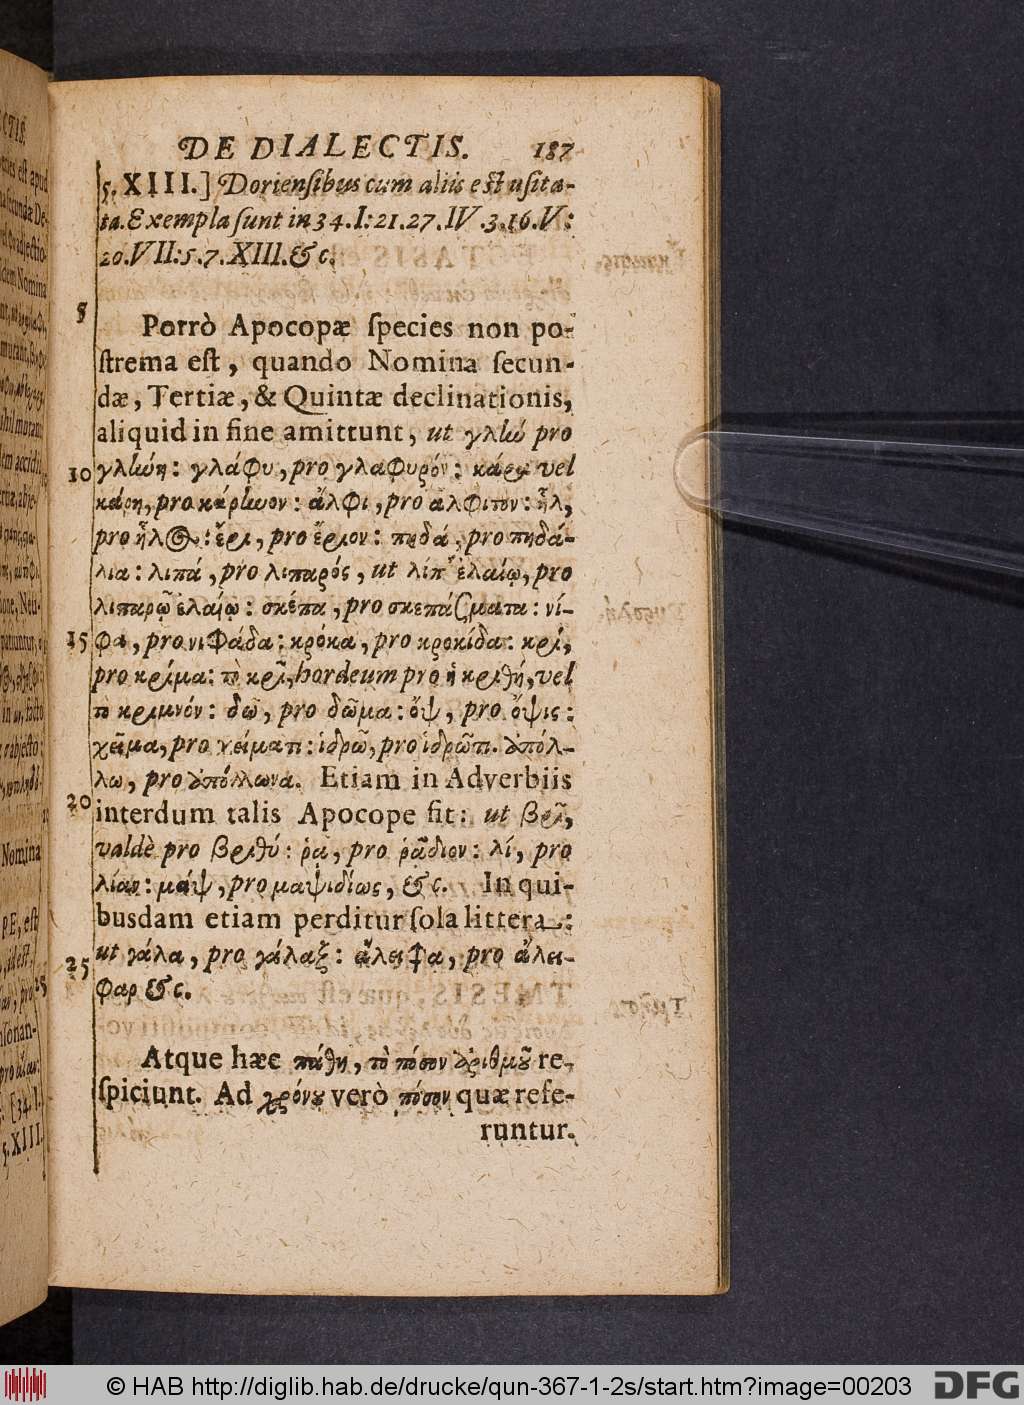 DE DIALECTIS. 187
5. XIII.] Doriensibus cum aliis est usita-
ta. Exempla sunt in 34. I: 21. 27. IV. 3. 16. V:
20. VII: 5. 7. XIII. &c.
8
Porrò Apocopæ species non po-
strema est, quando Nomina secun-
dæ, Tertiæ, & Quintæ declinationis,
aliquid in fine amittunt, ut pro
10 γλάφυ, pro γλαφυρόν: vel
κάρη, pro : ἄλφι, pro ἄλφιτον: ἧλ,
pro ἧλος: ἔρι, pro ἔριον: πηδά, pro πηδά-
λια: λιπά, pro λιπαρός, ut λίπ' ἐλαίῳ, pro
λιπαρῷ ἐλαίῳ: σκέπα, pro σκεπάσματα: νί-
15 φα, pro νιφάδα: κρόκα, pro κροκίδα: κρί,
pro κρίμα: τὸ κρῖ, hordeum pro ἡ κριθή, vel
τὸ κριμνόν: δῶ, pro δῶμα: ὄψ, pro ὄψις:
χεῖμα, pro χείματι: ἱδρῶ, pro ἱδρῶτι. ἀπόλ-
λω, pro ἀπόλλωνα. Etiam in Adverbiis
20 interdum talis Apocope fit: ut βρῖ,
valdè pro βριθύ: ῥα, pro ῥᾴδιον: λί, pro
λίαν: μάψ, pro μαψιδίως, &c. In qui-
busdam etiam perditur sola littera:
ut γάλα, pro γάλαξ: ἄλειφα, pro ἄλει-
25 φαρ &c.
Atque hæc πάθη, τὸ πόσον ἀριθμοῦ re-
spiciunt. Ad χρόνου verò πόσον quæ refe-
runtur.
© HAB http://diglib.hab.de/drucke/qun-367-1-2s/start.htm?image=00203 DFG